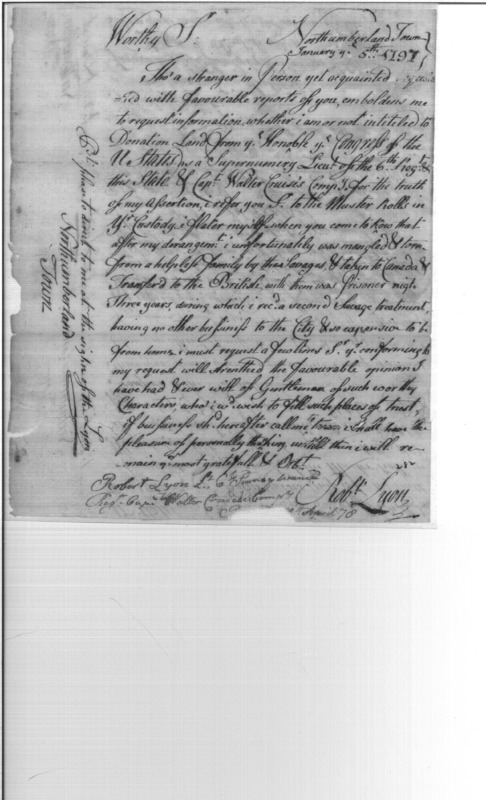 Worthy Sr.
Northumberland Town
January ye. 5th. 1797
Tho' a stranger in Person yet acquainted
with favourable reports of you, emboldens me
to request information, whether i am or not intitled to
Donation Land from ye. Honoble ye. Congress of the
Ue. States as a Supernumery Lieut. of the 6th. Regt. of
this State & Capt. Walter Cruise's Compy. for the truth
of my Assertion, i refer you Sr. to the Muster Rolls in
Yr. Custody. i flater myself when you come to know that
after my derangemt. i unfortunatly was mangled & torn
from a helpless family by the Savages, & taken to Canada &
Transferd to the British, with them was Prisoner nigh
Three years, during which i recd. a second Savage treatment,
having no other bussiness to the City & so expensive to
from home, i must request a few lines Sr. yr. conforming to
my request will strenthen the favourable opinion I
have had & ever will of Gentlemen of such worthy
Characters, who i wd. wish to fill such places of trust,
if bussiness shd. hereafter call me I shall have the
pleasure of personally thanking, untill then i will re
main yr. most gratefull & Obt.
Robt. Lyon
Robert Lyon Lt. 6th
Regt. Capt. Walter Compy
April 78
please to direct to me at the sign of the Lyon
Northumberland
Town